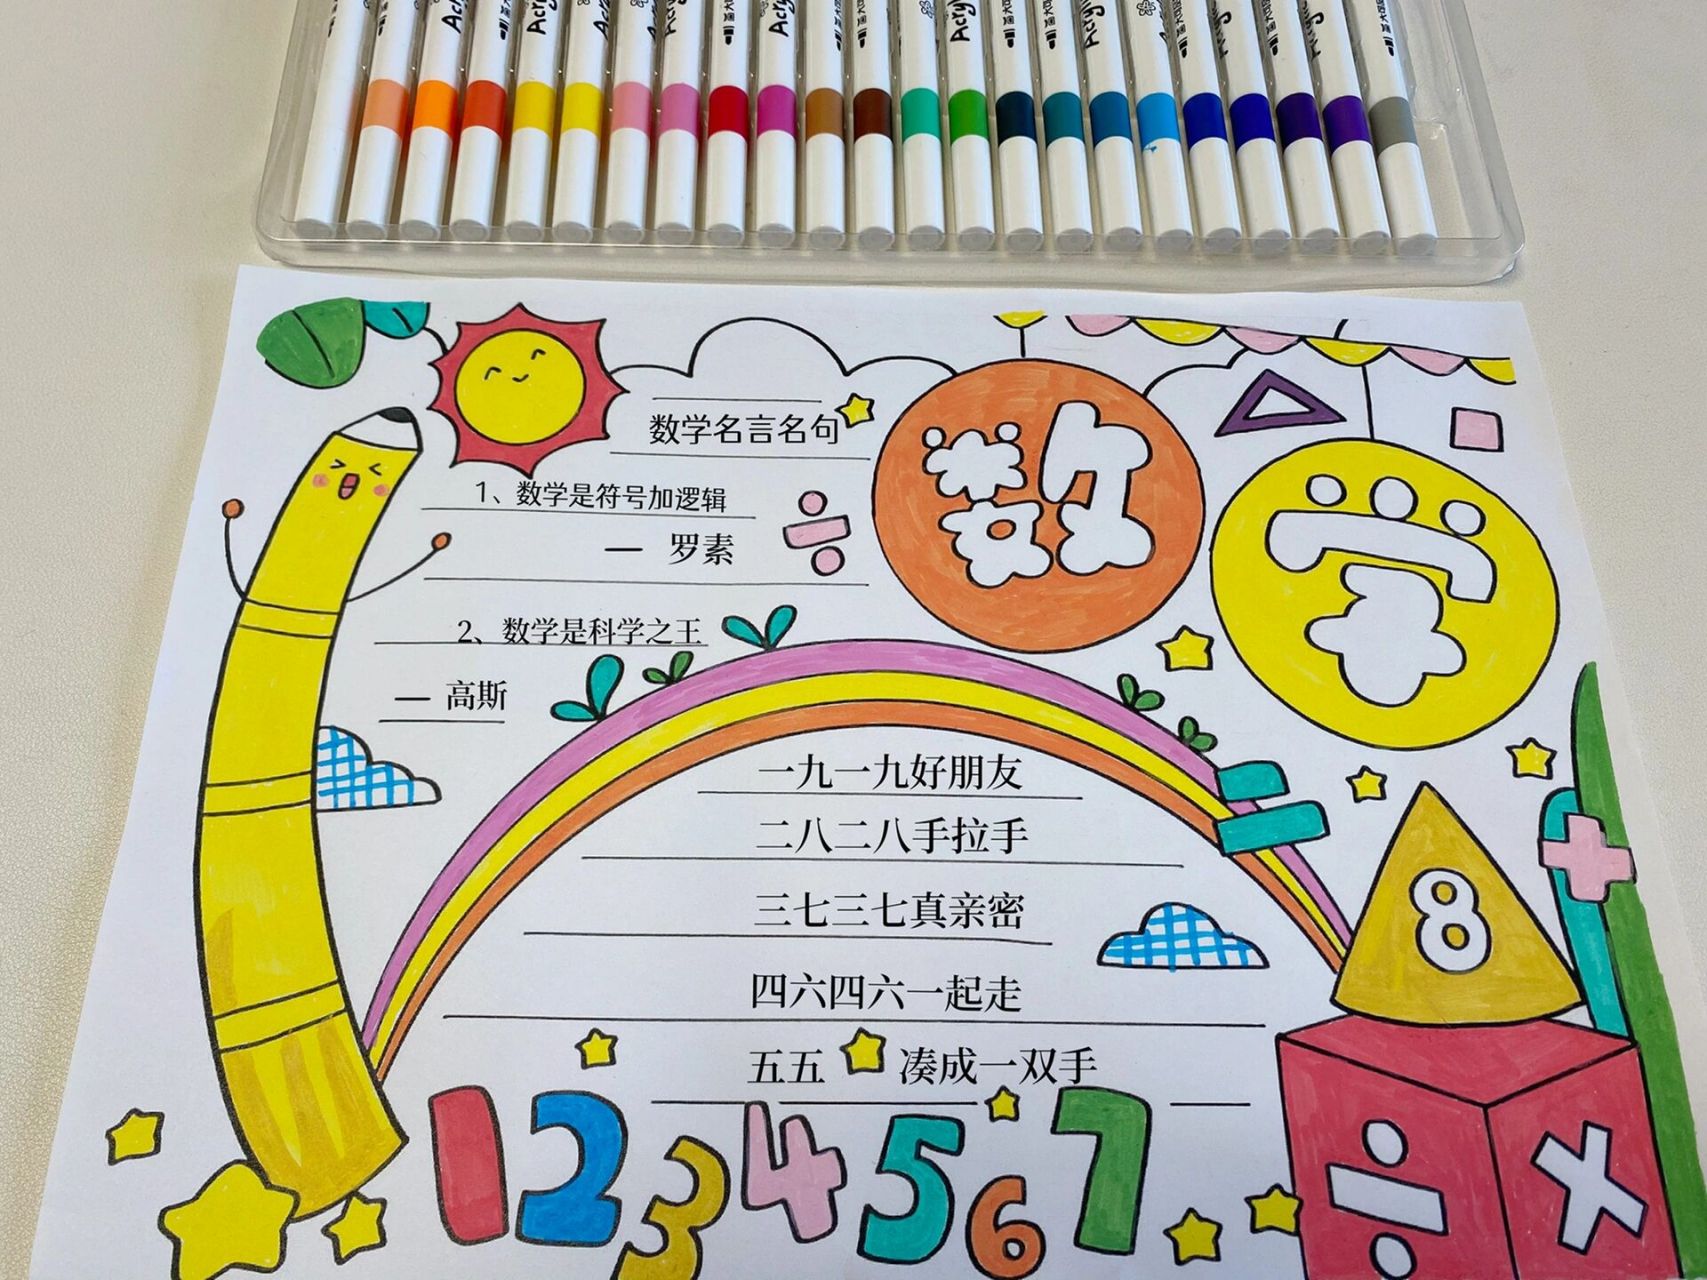 数学
数学名言名句
1、数学是符号加逻辑
— 罗素
2、数学是科学之王
— 高斯
一九一九好朋友
二八二八手拉手
三七三七真亲密
四六四六一起走
五五 凑成一双手
8
1 2 3 4 5 6 7
÷ ×